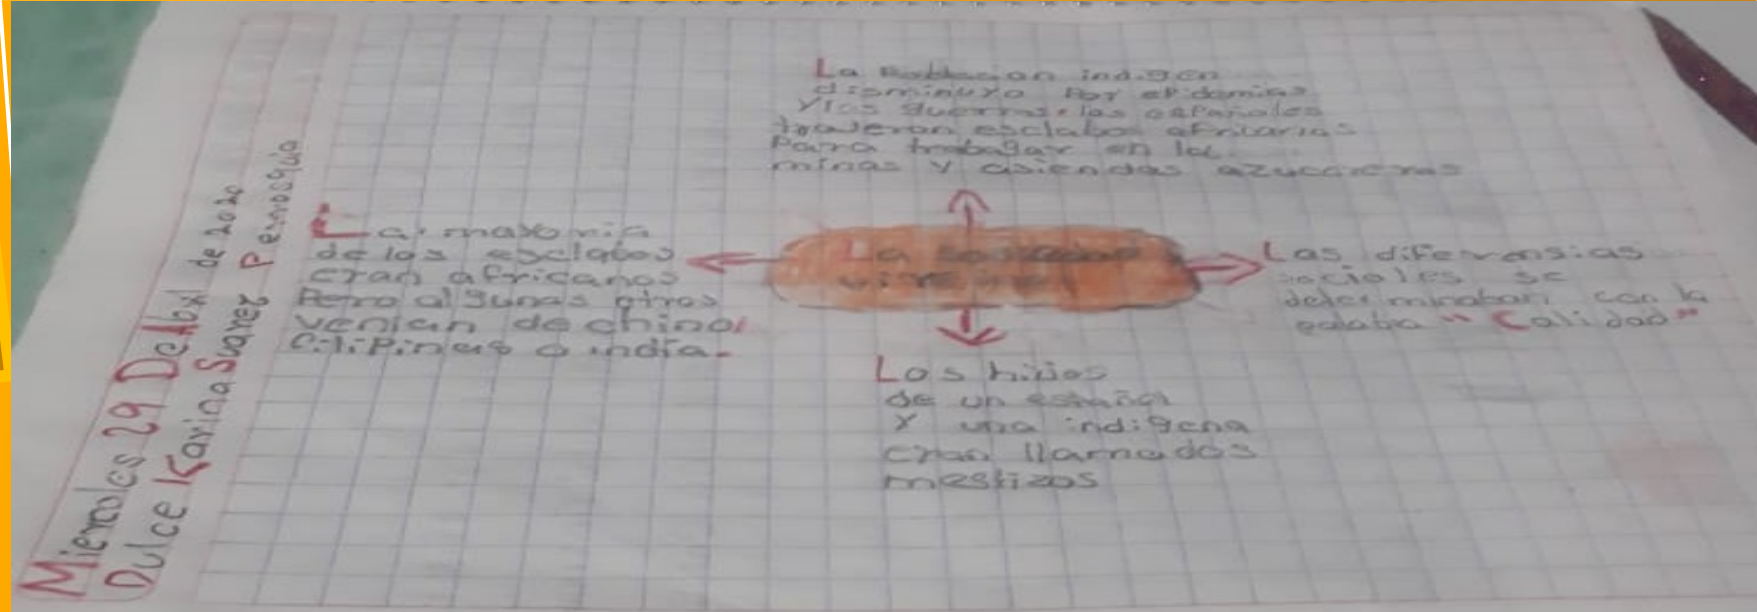 Miercoles 29 De Abril de 2020
Dulce Karina Suarez
La Poblacion indigen
disminuyo Por epidemias
Y las guerras. los españoles
esclabos africanos
Para trabagar en las
minas Y asiendas azucareras
La mayoria
de los esclabos
eran africanos
Pero algunas otros
venian de china
Filipinas o india.
La Sociedad
virreinal
Las diferensias
sociales se
determinaban con la
palaba "Calidad"
Los hijos
de un español
Y una indigena
eran llamados
mestizos